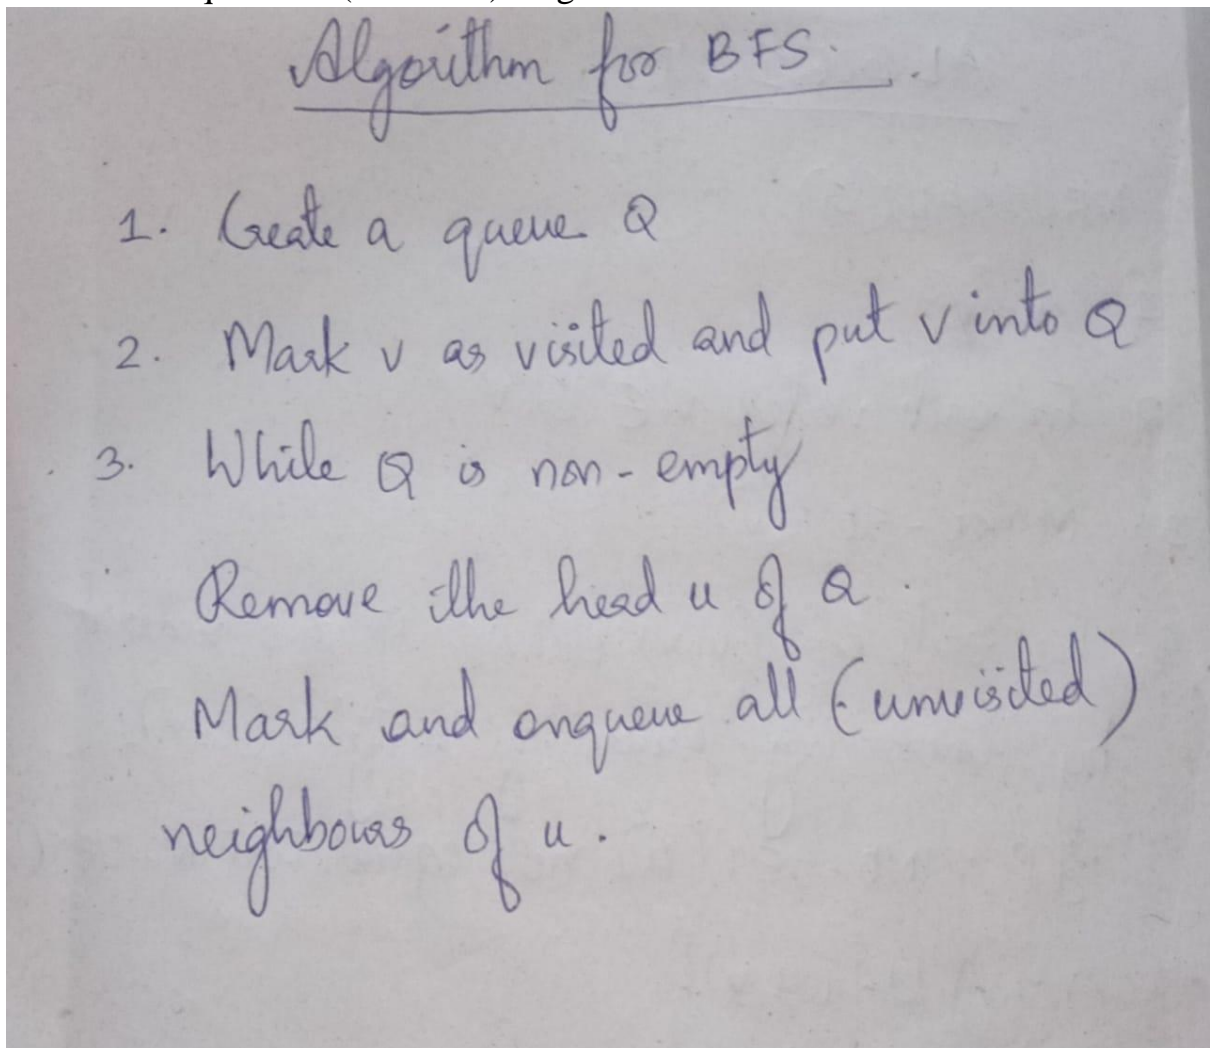 Algorithm for BFS.
1. Create a queue Q
2. Mark v as visited and put v into Q
3. While Q is non-empty
Remove the head u of Q.
Mark and enqueue all (unvisited)
neighbours of u.